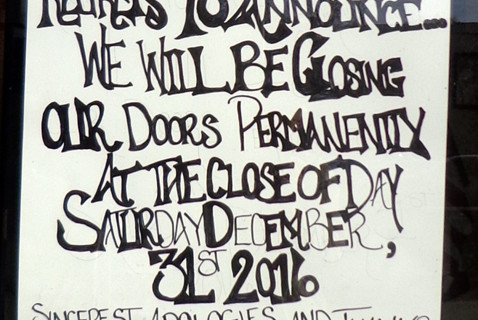 REGRETS TO ANNOUNCE...
WE WILL BE CLOSING
OUR DOORS PERMANENTLY
AT THE CLOSE OF DAY
SATURDAY DECEMBER,
31ST 2016
SINCEREST APOLOGIES AND